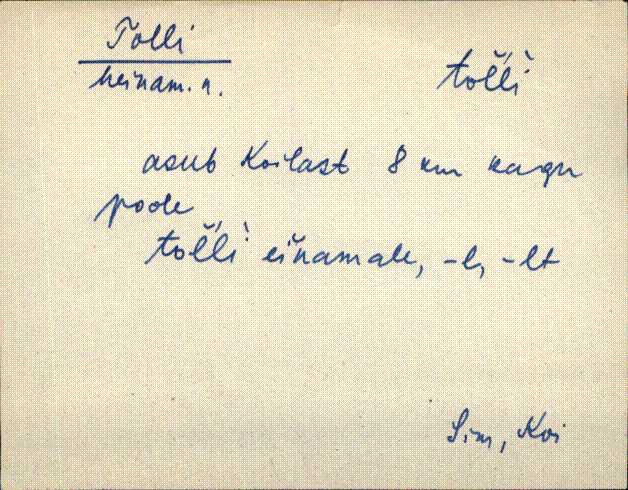 Tolli
heinam. n.
tol̆l̆i
asub Koilast 8 km kagu
poole
tol̆l̆i eińamale, -l, -lt
Sim, Koi